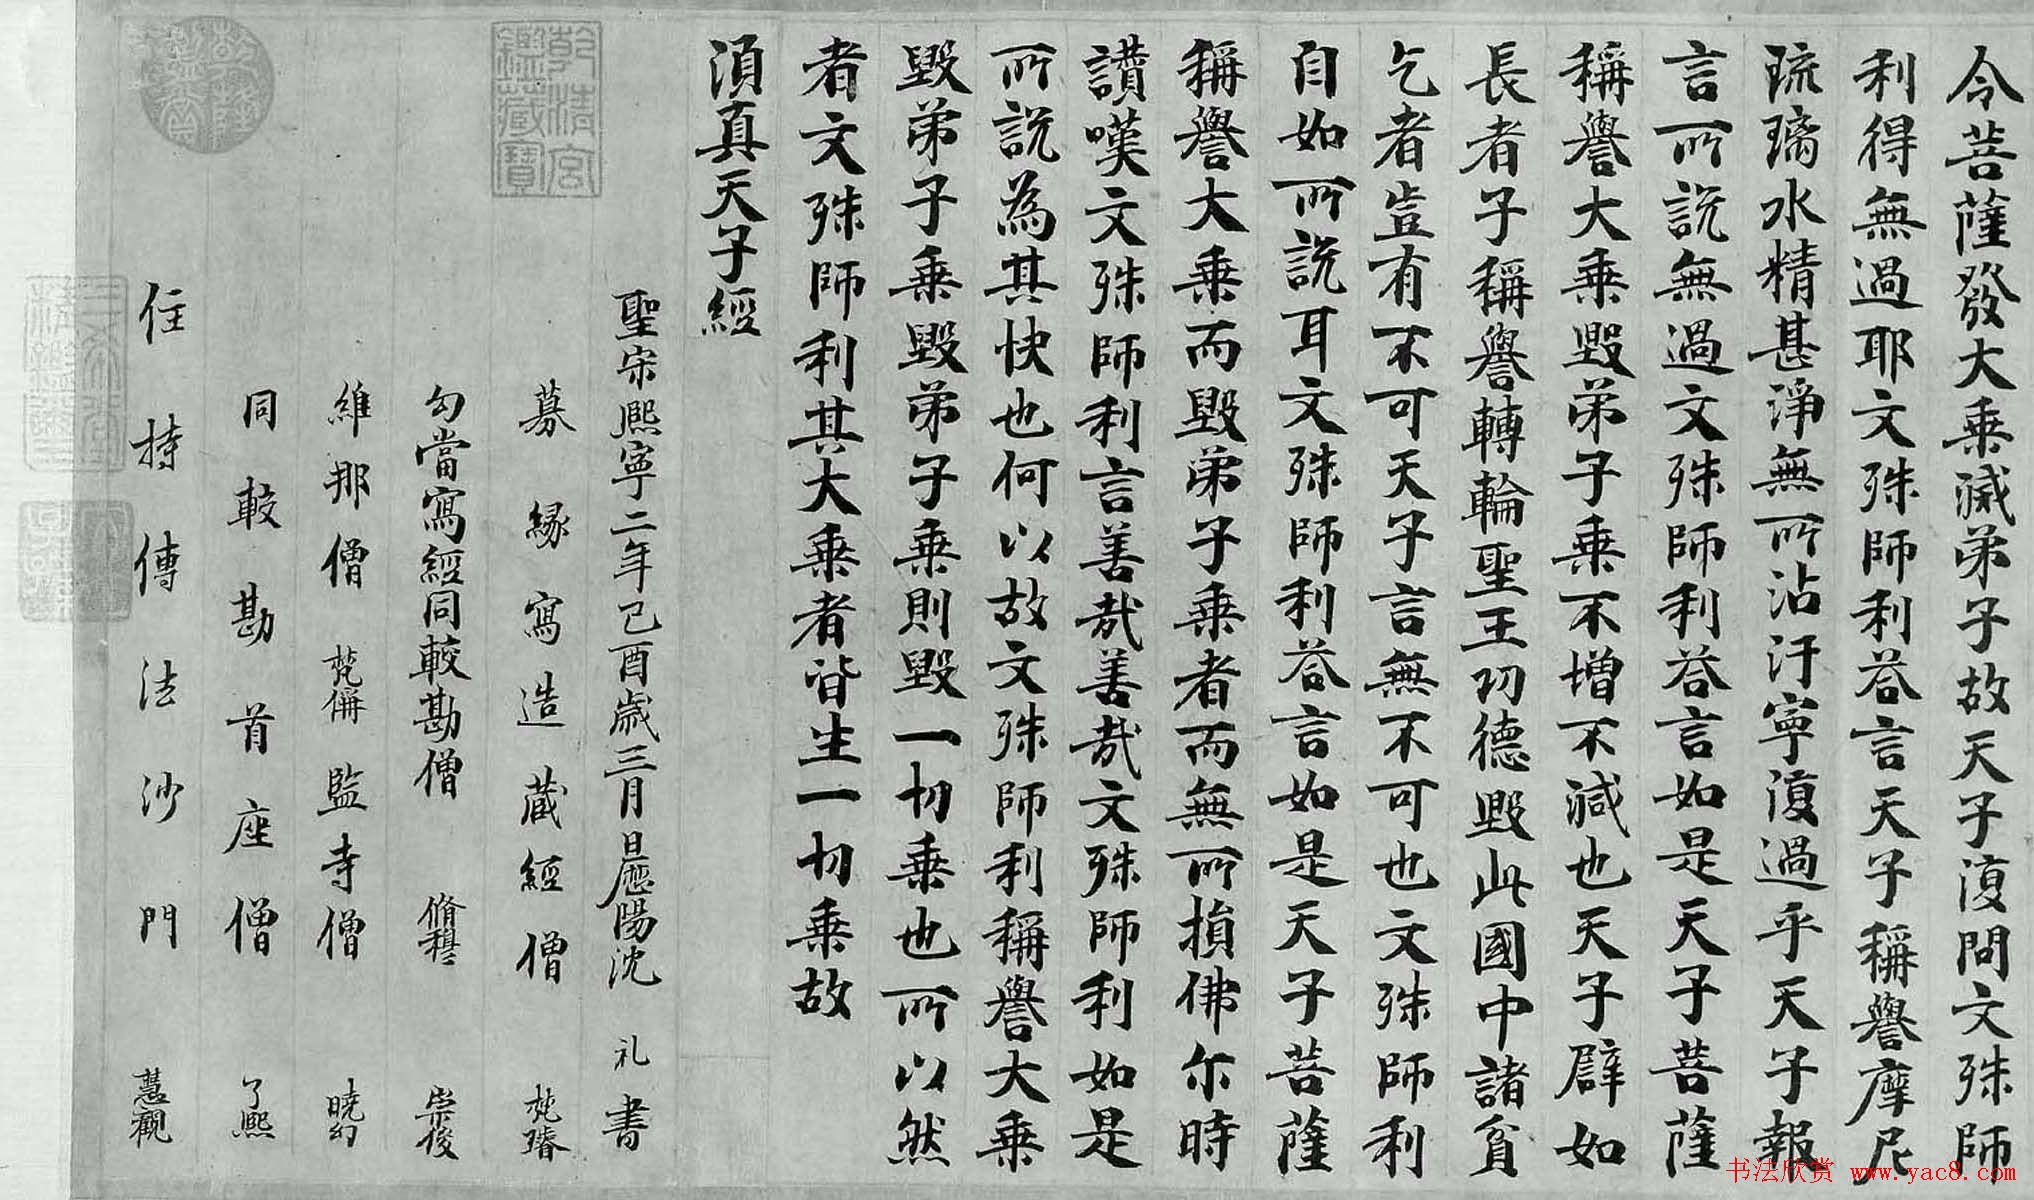 令菩薩發大乗滅弟子故天子復問文殊師
利得無過耶文殊師利荅言天子稱譽摩尼
琉璃水精甚淨無所沾汙寧復過乎天子報
言所說無過文殊師利荅言如是天子菩薩
稱譽大乗毀弟子乗不增不減也天子辟如
長者子稱譽轉輪聖王功德毀此國中諸貧
乞者豈有不可天子言無不可也文殊師利
自如所說耳文殊師利荅言如是天子菩薩
稱譽大乗而毀弟子乗者而無所損佛尓時
讃嘆文殊師利言善哉善哉文殊師利如是
所說為其快也何以故文殊師利稱譽大乗
毀弟子乗毀弟子乗則毀一切乗也所以然
者文殊師利其大乗者皆生一切乗故
湏真天子經
聖宋熙寧二年己酉歲三月日歷陽沈 礼 書
募緣寫造藏經僧 梵瓊
勾當寫經同較勘僧 脩穆 崇俊
維那僧 梵偋 監寺僧 曉幻
同較勘首座僧 了熙
住持傳法沙門 慧觀
乾清宮鑑藏寶
乾隆鑑賞
三希堂精鑑璽
書法欣賞 www.yac8.com